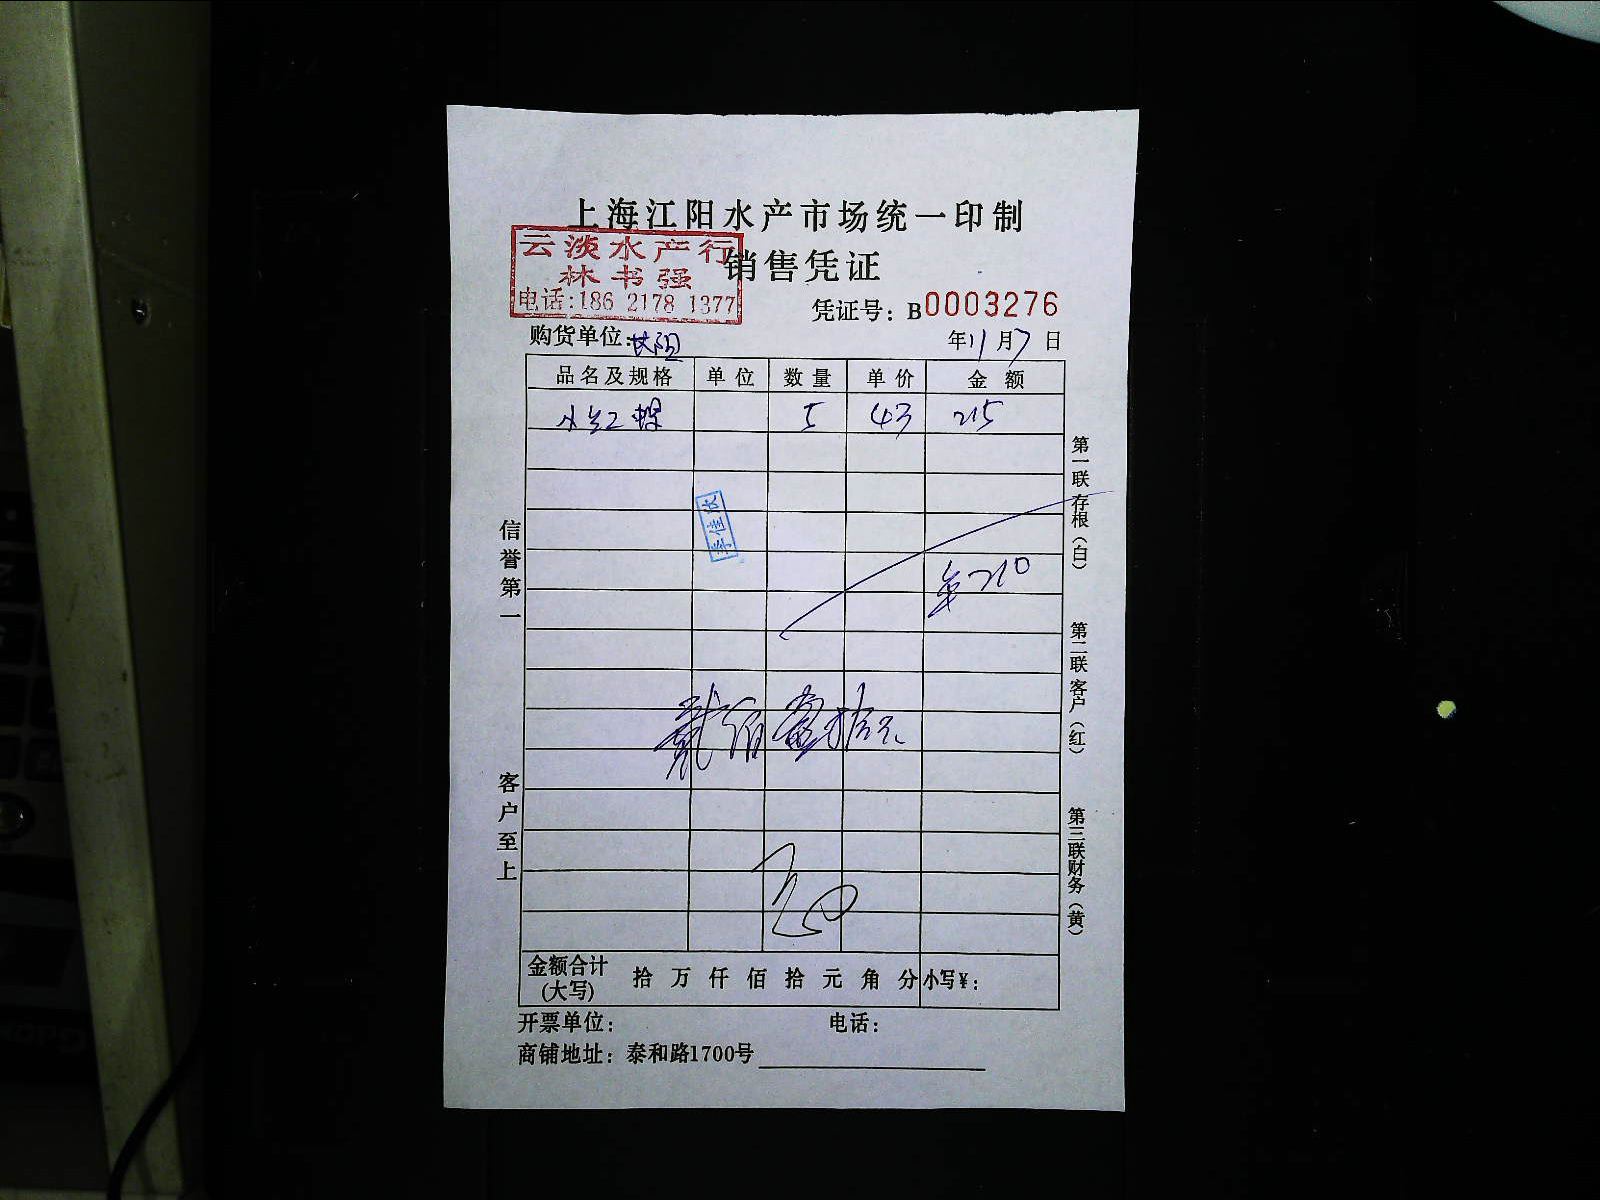 上海江阳水产市场统一印制
云淡水产行
林书强
电话:186 2178 1377
销售凭证
凭证号：B0003276
购货单位:长阳
年11月7日
品名及规格 单位 数量 单价 金额
小红螺 5 43 215
李佳欣
210
贰佰壹拾元
信誉第一
客户至上
第一联存根（白）
第二联客户（红）
第三联财务（黄）
金额合计(大写) 拾 万 仟 佰 拾 元 角 分 小写¥：
开票单位： 电话：
商铺地址：泰和路1700号